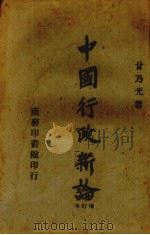 甘乃光著
中國行政新論
增訂本
商務印書館印行